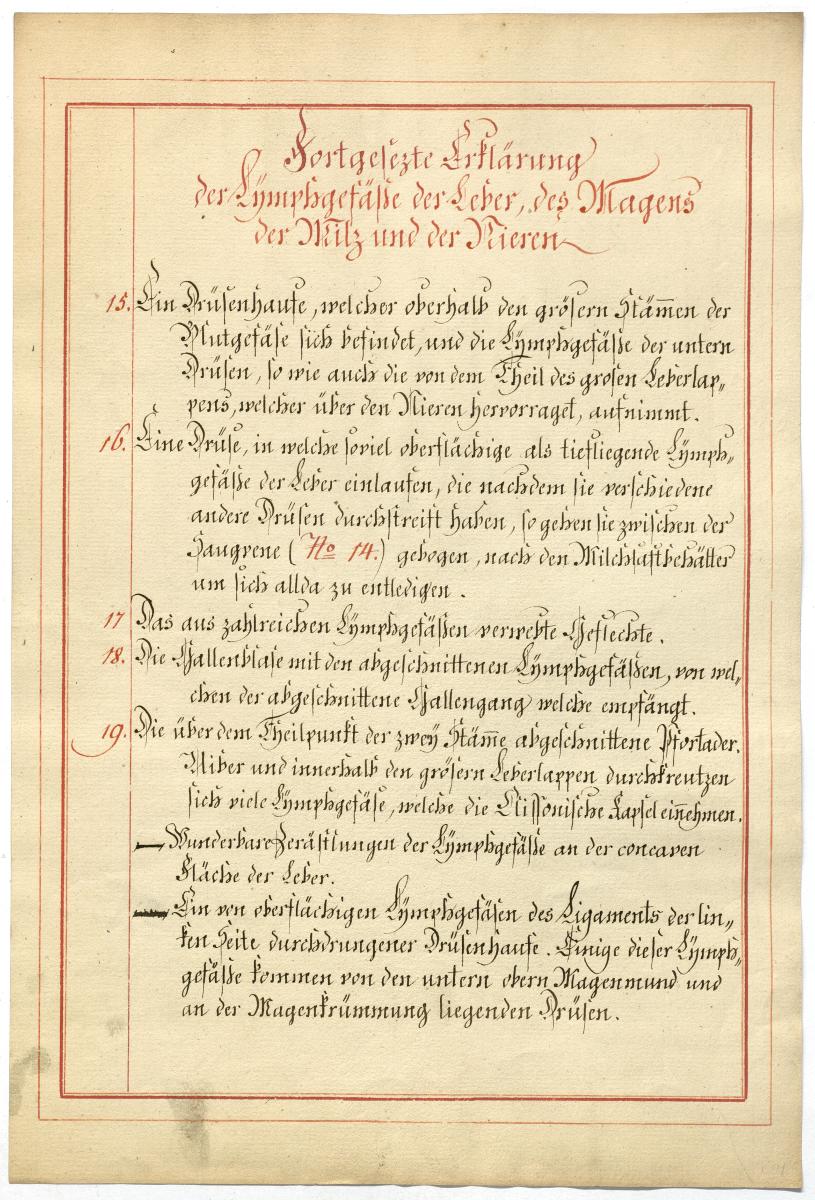 Fortgesezte Erklärung
der Lÿmphgefäße der Leber, des Magens
der Milz und der Nieren
15. Ein Drüsenhaufe, welcher oberhalb den grösern Stäm̅en der
Blutgefäse sich befindet, und die Lÿmphgefäße der untern
Drüsen, so wie auch die von dem Theil des grosen Leberlap„
pens, welcher über den Nieren hervorraget, aufnimmt.
16. Eine Drüse, in welche soviel oberflächige als tiefliegende Lÿmph„
gefäße der Leber einlaufen, die nachdem sie verschiedene
andere Drüsen durchstreift haben, so gehen sie zwischen der
Saugvene (No 14.) gebogen, nach den Milchsaftbehälter
um sich allda zu entledigen.
17 Das aus zahlreichen Lÿmphgefäßen verwebte Geflechte.
18. Die Gallenblase mit den abgeschnittenen Lÿmphgefäßen, von wel„
chen der abgeschnittene Gallengang welche empfängt.
19. Die über dem Theilpunkt der zweÿ Stäm̅e abgeschnittene Pfortader.
Uiber und innerhalb den grösern Leberlappen durchkreutzen
sich viele Lÿmphgefäse, welche die Klissonische Kapsel ein̅ehmen.
— Wunderbare Zerästlungen der Lÿmphgefäße an der concaven
Fläche der Leber.
— Ein von oberflächigen Lÿmphgefäsen des Ligaments der lin„
ken Seite durchdrungener Drüsenhaufe. Einige dieser Lÿmph„
gefäße kommen von den untern obern Magenmund und
an der Magenkrümmung liegenden Drüsen.